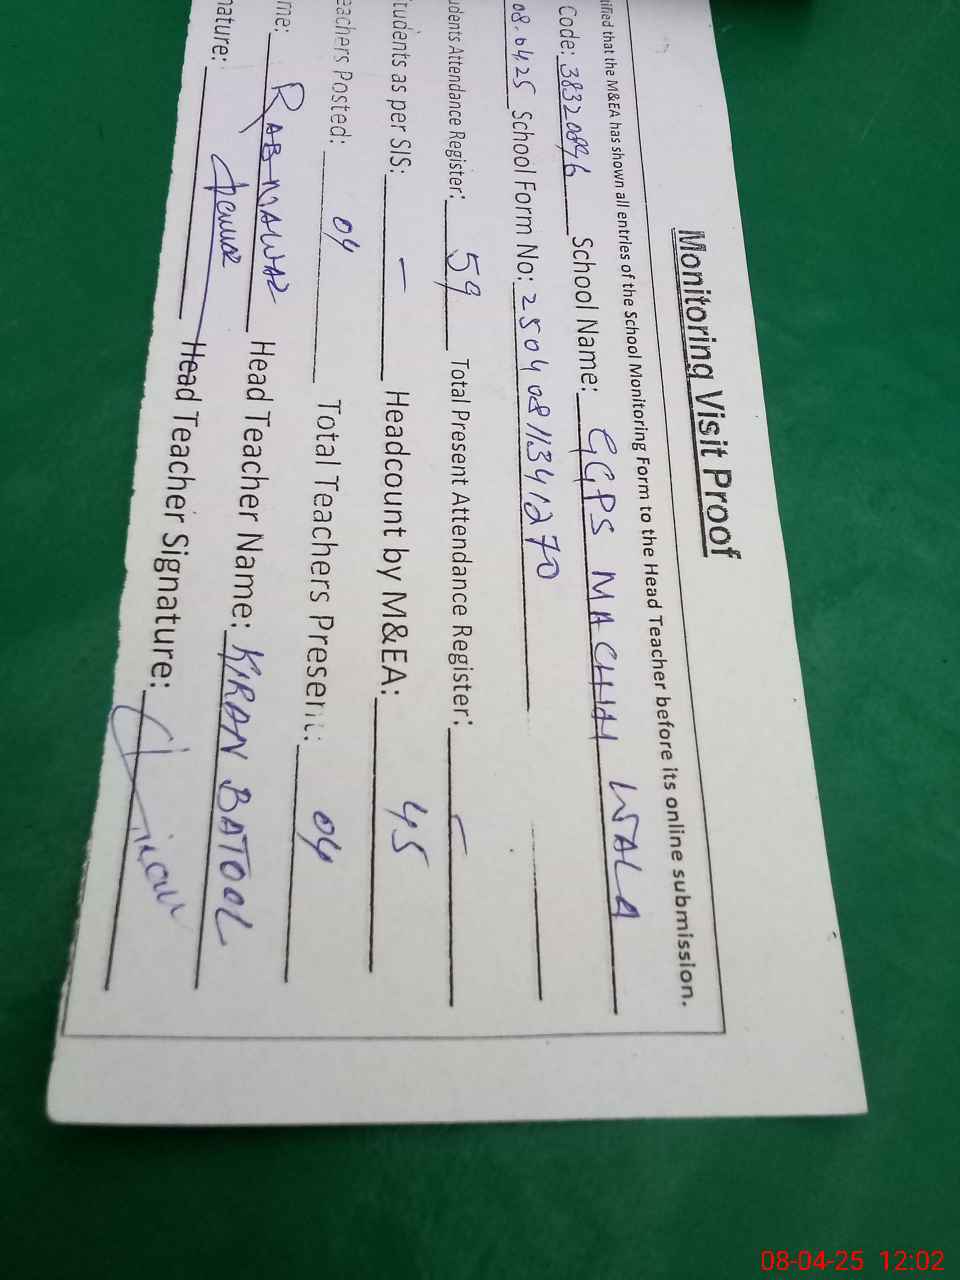 Monitoring Visit Proof
tified that the M&EA has shown all entries of the School Monitoring Form to the Head Teacher before its online submission.
Code: 38320896 School Name: GGPS MACHHI WALA
08.04.25 School Form No: 25040811341270
udents Attendance Register: 59 Total Present Attendance Register: -
tudents as per SIS: - Headcount by M&EA: 45
eachers Posted: 04 Total Teachers Present: 04
me: RABNAWAZ Head Teacher Name: KIRAN BATOOL
nature: Head Teacher Signature:
08-04-25 12:02